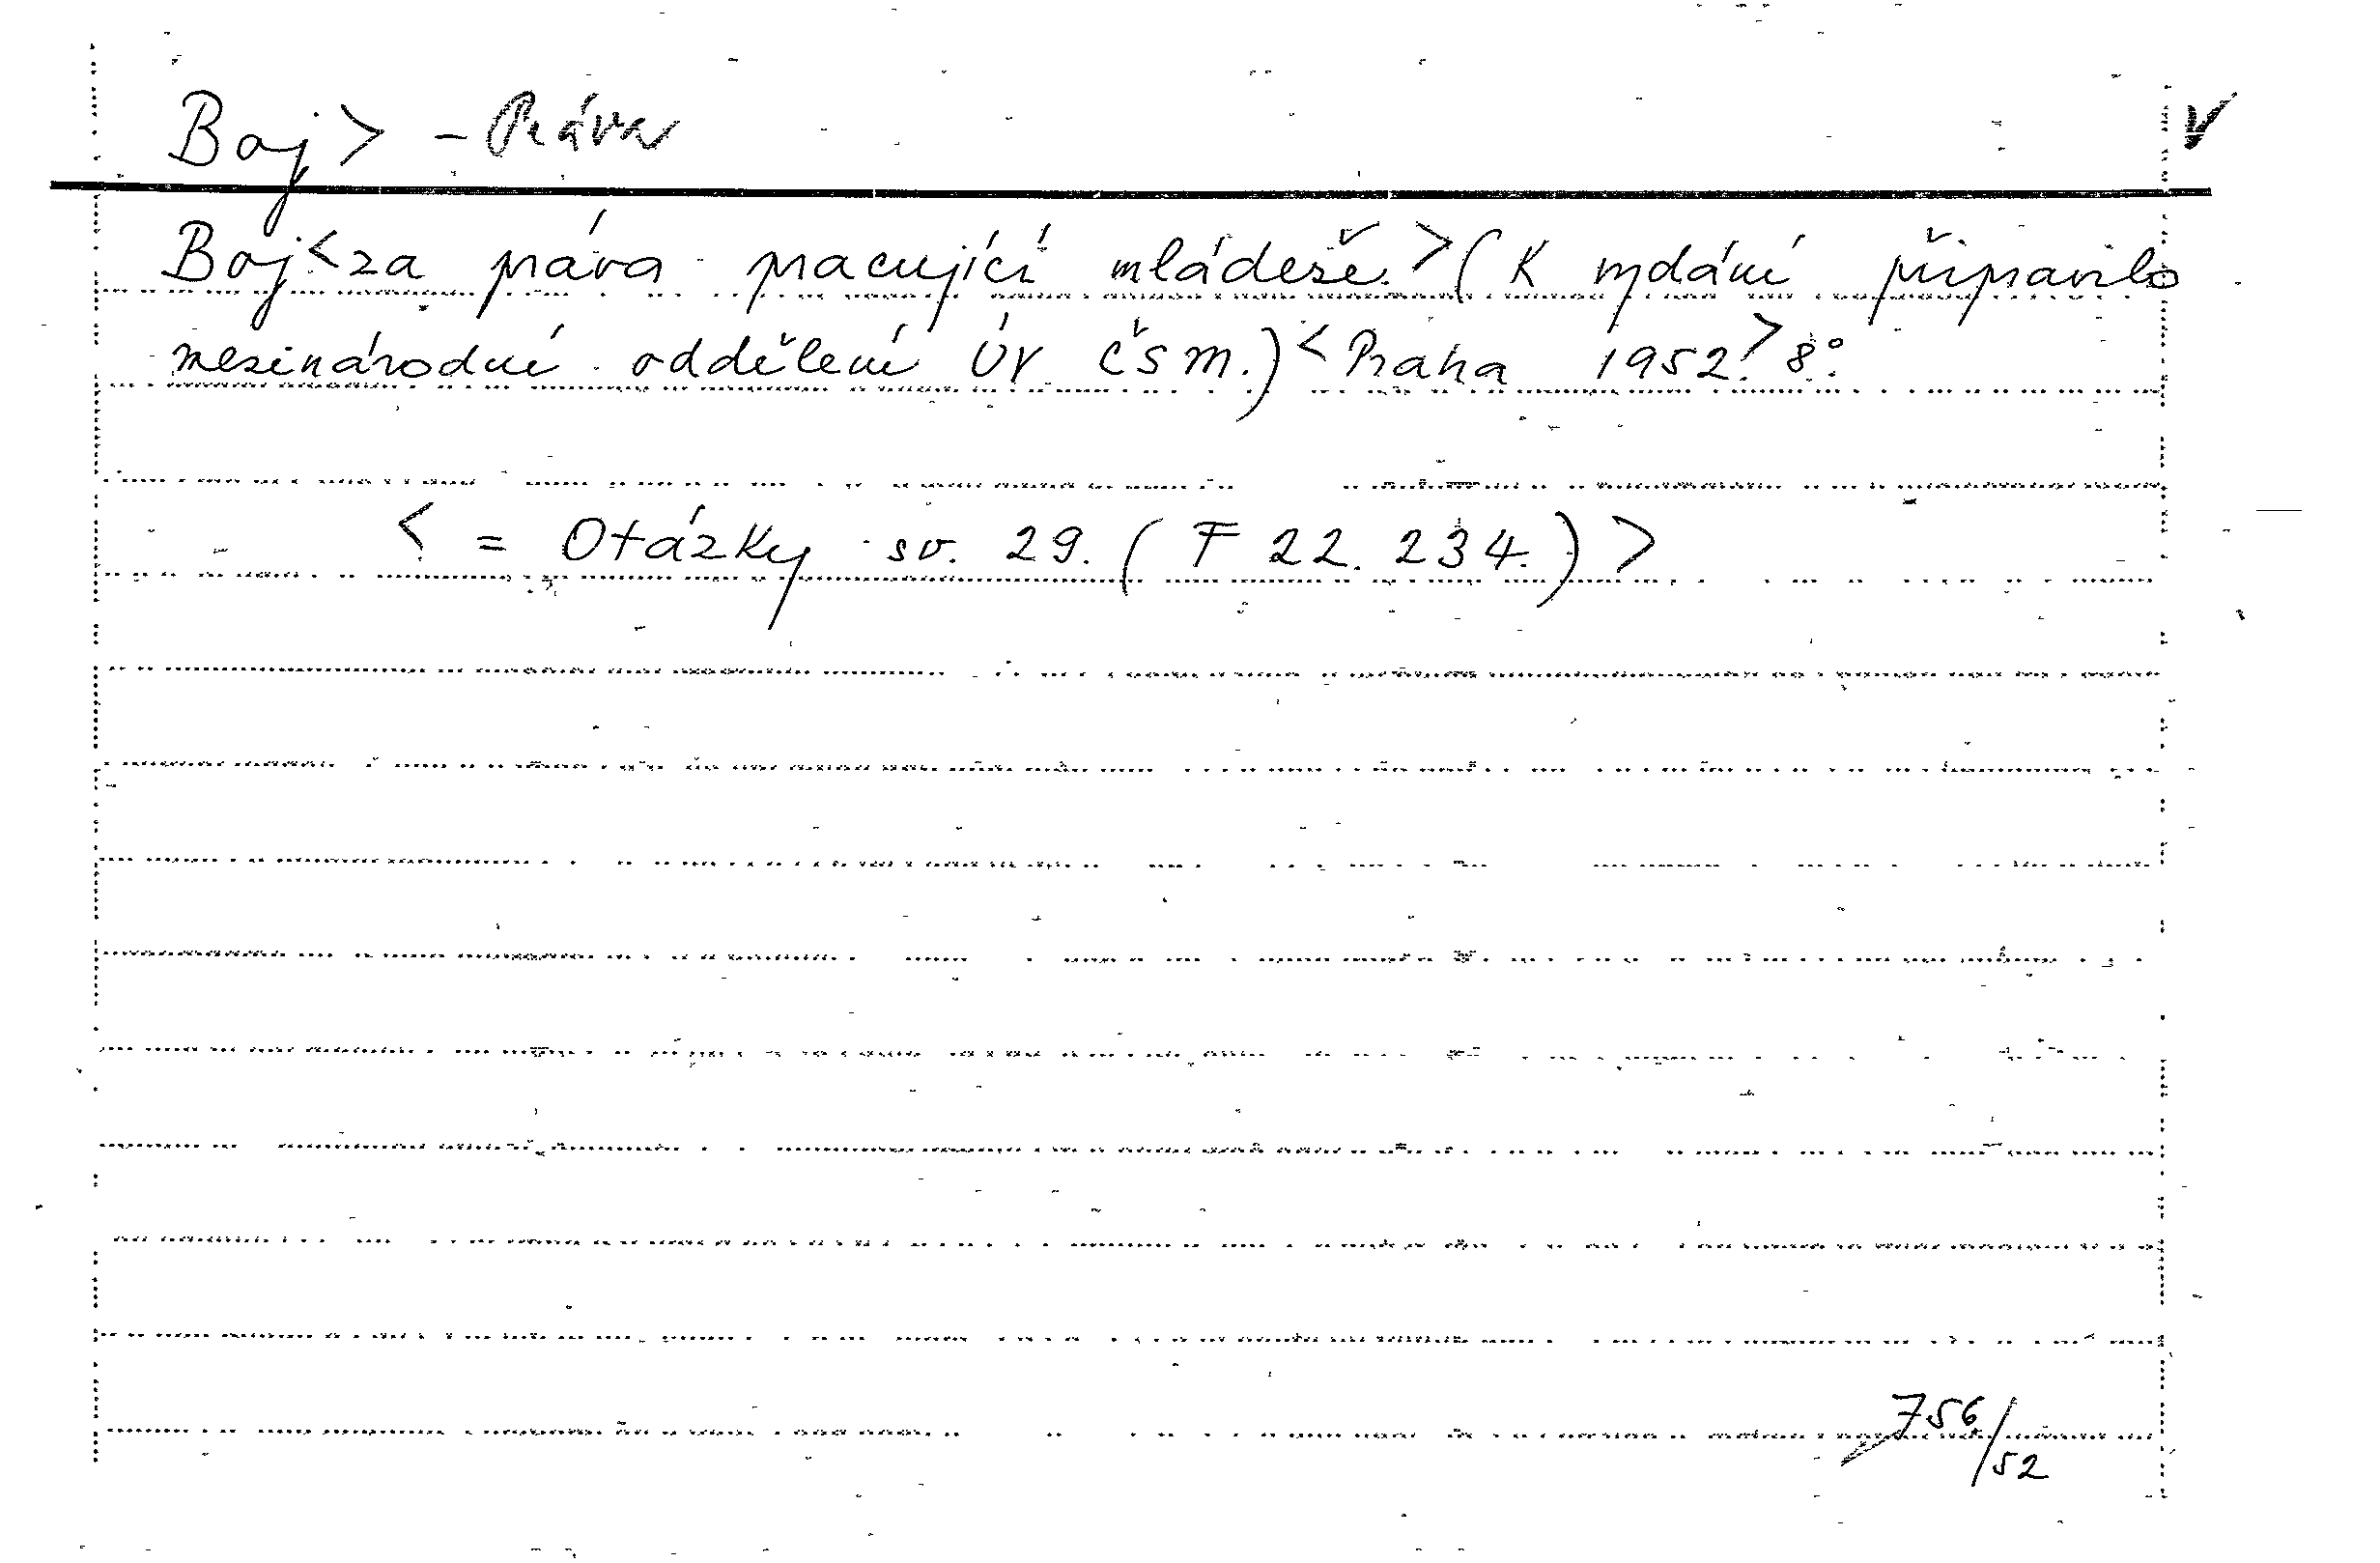 Boj> - Práva V
Boj<za práva pracující mládeže.>(K vydání připravilo
mezinárodní oddělení ÚV ČSM.)<Praha 1952.>8°.
< = Otázky sv. 29. (F 22.234.)>
756/52